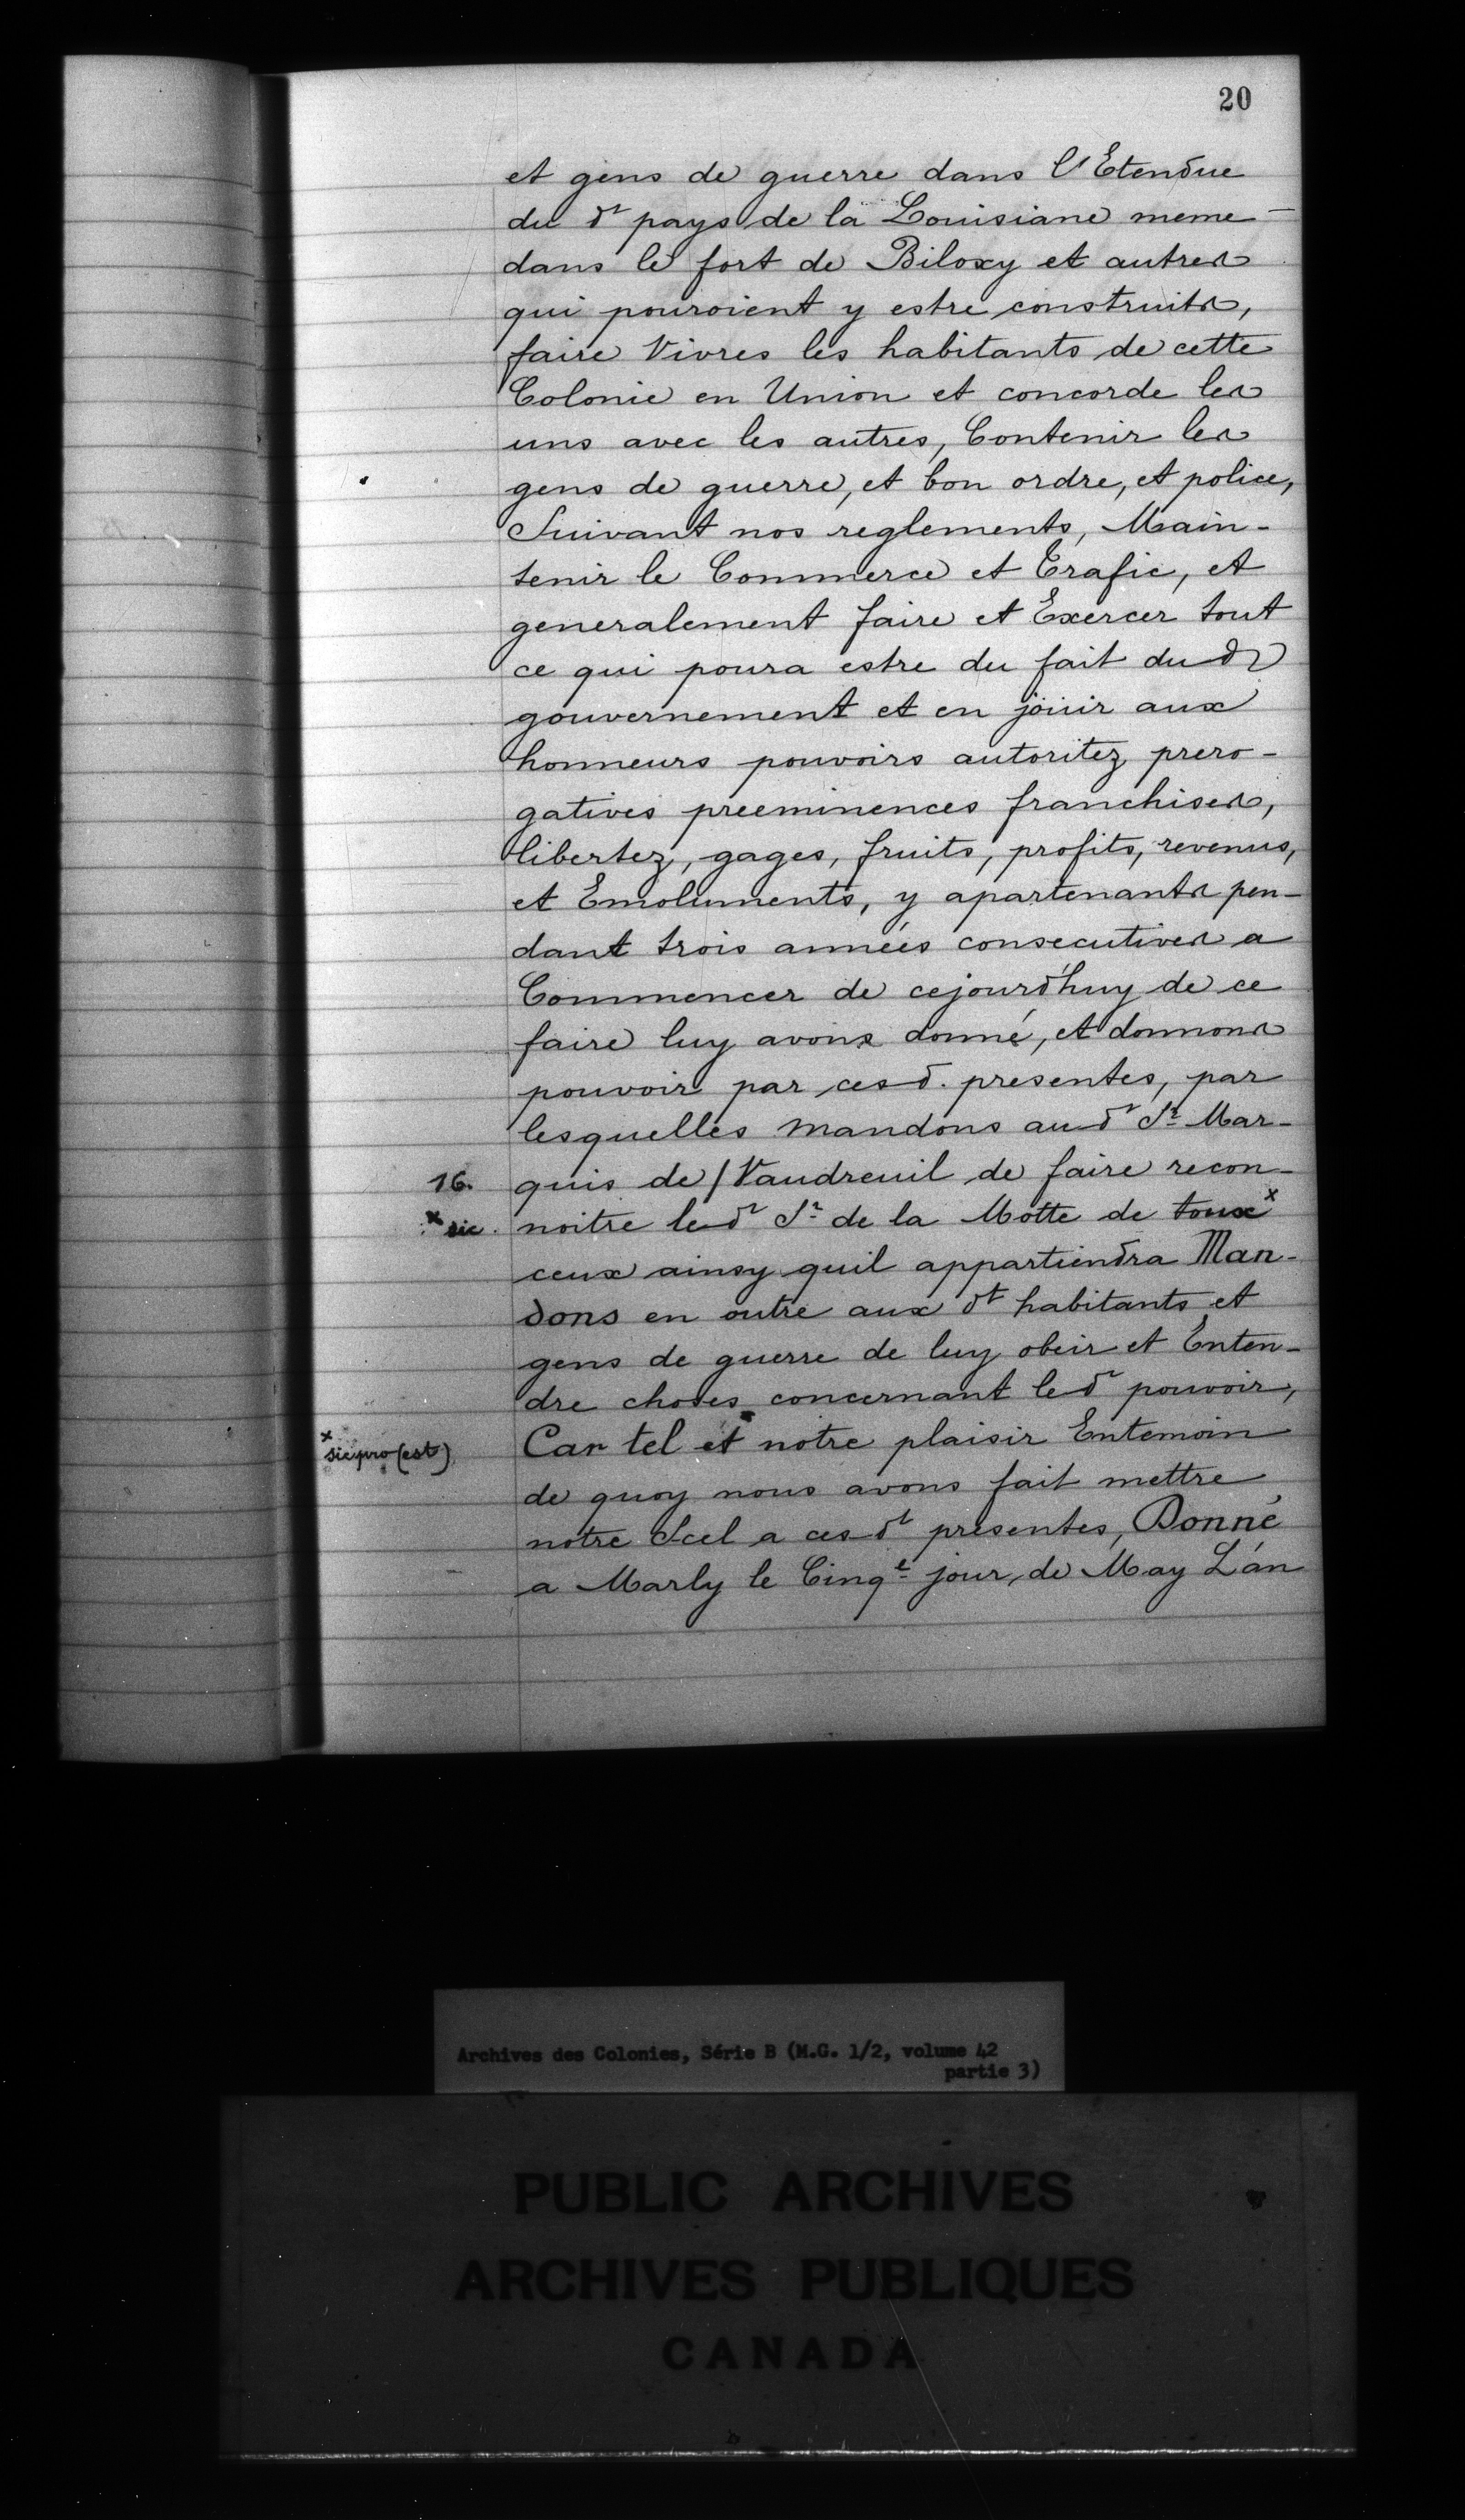 20
et gens de guerre dans l'Etendue
du dt pays de la Louisiane meme
dans le fort de Biloxy et autres
qui pouroient y estre construits,
faire Vivres les habitants de cette
Colonie en Union et concorde les
uns avec les autres, Contenir les
gens de guerre, et bon ordre, et police,
Suivant nos reglements, Main-
tenir le Commerce et Trafic, et
generalement faire et Exercer tout
ce qui poura estre du fait du dt
gouvernement et en joüir aux
honneurs pouvoirs autoritez prero-
gatives preeminences franchises,
libertez, gages, fruits, profits, revenus,
et Emoluments, y apartenants pen-
dant trois années consecutives a
Commencer de cejourd'huy de ce
faire luy avons donné, et donnons
pouvoir par ces d. presentes, par
lesquelles mandons au dt Sr Mar-
16. quis de / Vaudreuil de faire recon-
x sic. noitre le dt Sr de la Motte de toux x
ceux ainsy quil appartiendra Man-
dons en outre aux dt habitants et
gens de guerre de luy obeir et Enten-
dre choses concernant le dt pouvoir,
x sic pro (est) Car tel et x notre plaisir Entemoin
de quoy nous avons fait mettre
notre Scel a ces dt presentes, Donné
a Marly le Cinqe jour de May L'an
Archives des Colonies, Série B (M.G. 1/2, volume 42
partie 3)
PUBLIC ARCHIVES
ARCHIVES PUBLIQUES
CANADA